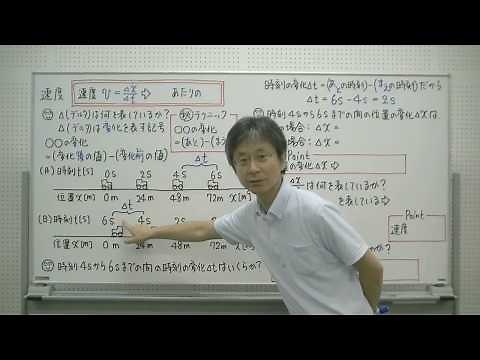 速度 速度 v = Δx/Δt ⇨ あたりの
Δ(デルタ)は何を表しているか?
Δ(デルタ)は変化を表す記号
○○の変化
=(変化後の値)-(変化前の値)
㊙テクニック
○○の変化
=(あと)-(ま
Δt
(A) 時刻t[s] 0s 2s 4s 6s
位置x[m] 0m 24m 48m 72m x[m]
Δt
(B) 時刻t[s] 6s 4s 2s
位置x[m] 0m 24m 48m 72m x[m]
時刻4sから6sまでの間の時刻の変化Δtはいくらか?
時刻の変化Δt=(あとの時刻)-(まえの時刻)だから
Δt = 6s - 4s = 2s
時刻4sから6sまでの間の位置の変化Δxは
の場合: Δx =
の場合: Δx =
Point
Δx/Δtは何を表しているか?
ている⇨
Point
速度
か?